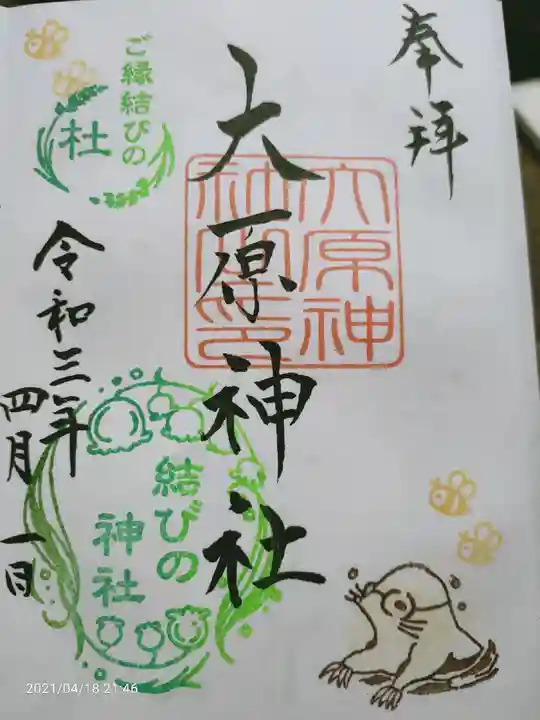 奉拝
大原神社
大原神
ご縁結びの
杜
令和三年
四月一日
結びの
神社
2021/04/18 21:46